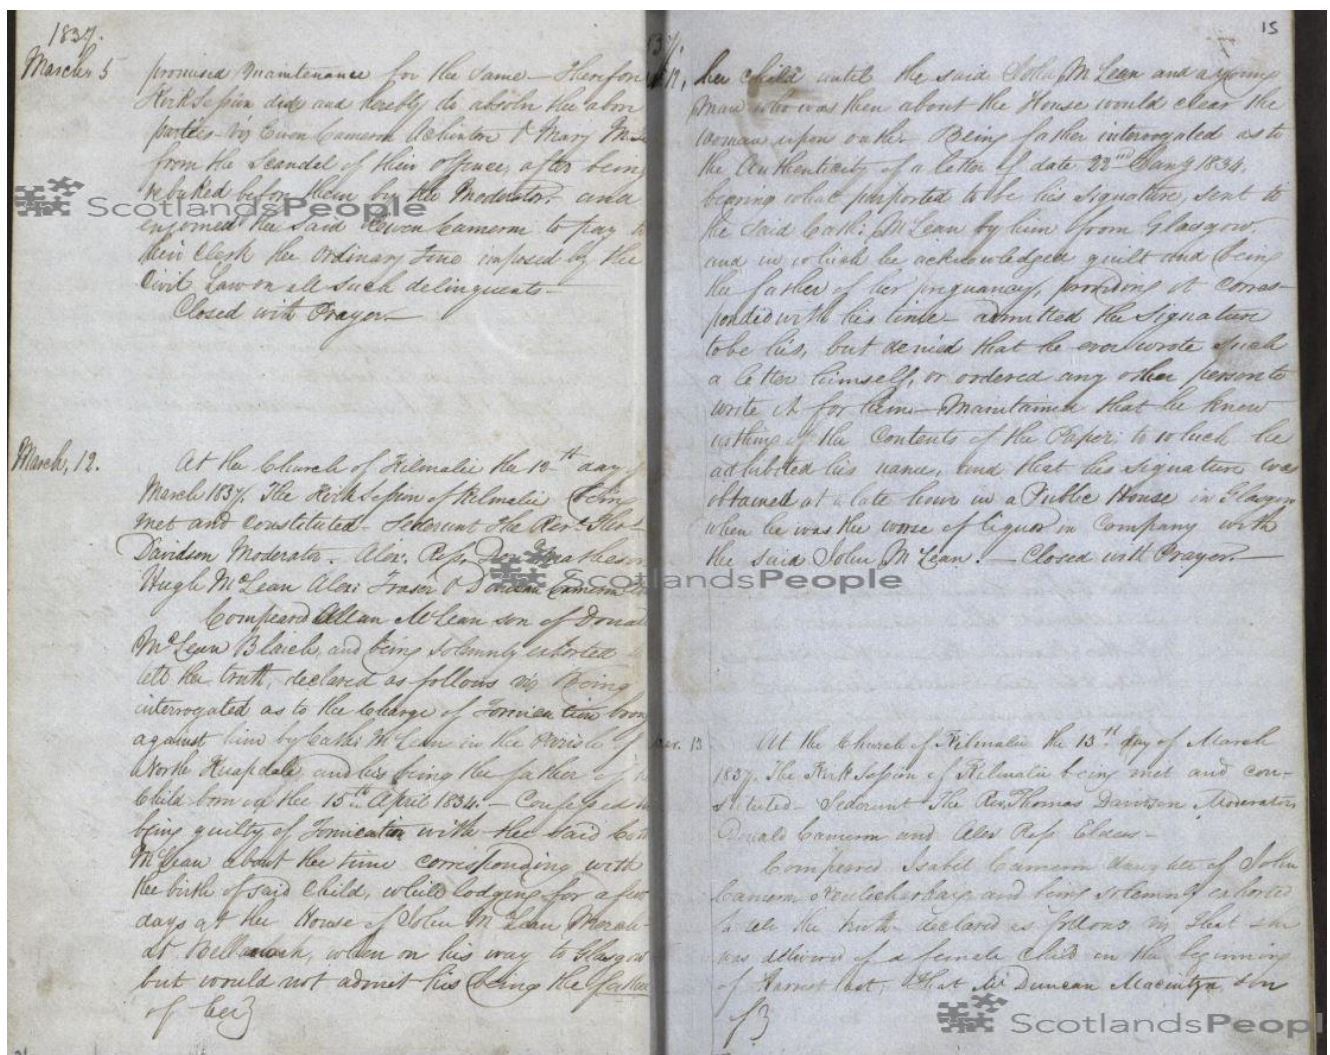 1837.
March 5
promised Maintenance for the Same - Therefore
Kirk Session did and hereby do absolve the above
parties viz Ewen Cameron Achintore & Mary
from the Scandal of their offence, after being
rebuked before them by the Moderator. and
enjoined the said Ewen Cameron to pay to
their Clerk the ordinary fine imposed by the
Civil Law on all such delinquents -
Closed with Prayer. -
March, 12.
At the Church of Kilmalie the 12th day of
March 1837. The Kirk Session of Kilmalie being
met and constituted - Sederunt The Revd. Thos.
Davidson Moderator. Alexr. Ross,
Hugh McLean Alexr Fraser & Duncan Cameron
Compeared Allan McLean son of Donald
McLean Blaich, and being solemnly exhorted to
tell the truth, declared as follows viz Being
interrogated as to the Charge of Fornication brought
against him by Cathn McLean in the Parish of
North Knapdale and his being the father of
Child born on the 15th April 1834. - Confessed
being guilty of Fornication with the said Cathn
McLean about the time corresponding with
the birth of said Child, while lodging for a few
days at the House of John McLean Merch-
at Bellanoch, when on his way to Glasgow
but would not admit his being the father
of her}
15
her Child until the said John McLean and a young
man who was then about the House would clear the
woman upon oath. Being father interrogated as to
the Authenticity of a letter of date 22nd Jany 1834.
bearing what purported to be his signature, sent to
the said Cathn McLean by him from Glasgow.
and in which he acknowledged guilt and being
the father of her pregnancy, providing it corres-
ponded with his time - admitted the signature
to be his, but denied that he ever wrote such
a letter himself, or ordered any other person to
write it for him - Maintained that he knew
nothing of the Contents of the Paper to which he
adhibited his name, and that his signature was
obtained at a late hour in a Public House in Glasgow
when he was the worse of liquor in Company with
the said John McLean. - Closed with Prayer. -
13
At the Church of Kilmalie the 13th day of March
1837. The Kirk Session of Kilmalie being met and con-
stituted - Sederunt The Rev. Thomas Davidson Moderator
Donald Cameron and Alexr Ross Elders -
Compeared Isabel Cameron daughter of John
Cameron and being solemnly exhorted
to tell the truth declared as follows viz That she
was delivered of a female Child in the beginning
of Harvest last, That Mr Duncan Macintyre, son
of}
ScotlandsPeople
ScotlandsPeople
ScotlandsPeopl